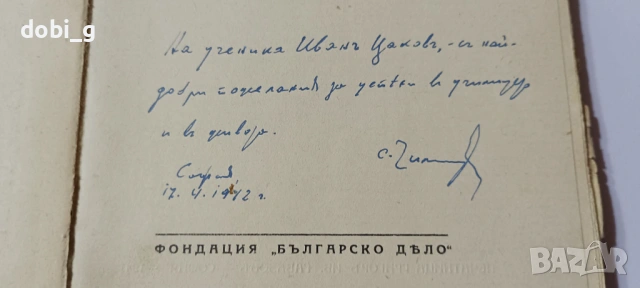 dobi_g
На ученика Иванъ Цаковъ, - съ най-
добри пожелания за успѣхи в училище
и въ живота.
София
17. 1942 г.
ФОНДАЦИЯ „БЪЛГАРСКО ДѢЛО“
BAZAR